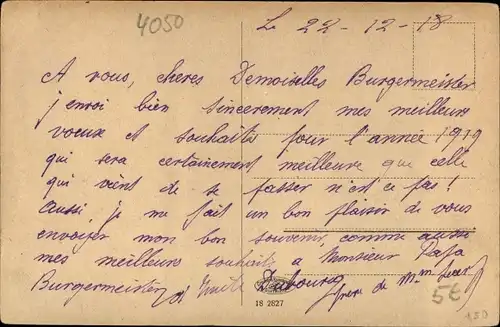 4050
Le 22-12-18
A vous, cheres Demoiselles Burgermeister
j'envoi bien sincerement mes meilleurs
voeux et souhaits pour l'année 1919
qui sera certainement meilleure que celle
qui vient de se passer n'est ce pas!
Aussi, je me fait un bon plaisir de vous
envoyer mon bon souvenir comme aussi
mes meilleurs souhaits a Monsieur Papa
Burgermeister Emile Dubourg
frere de Mme
18 2827
5€
150